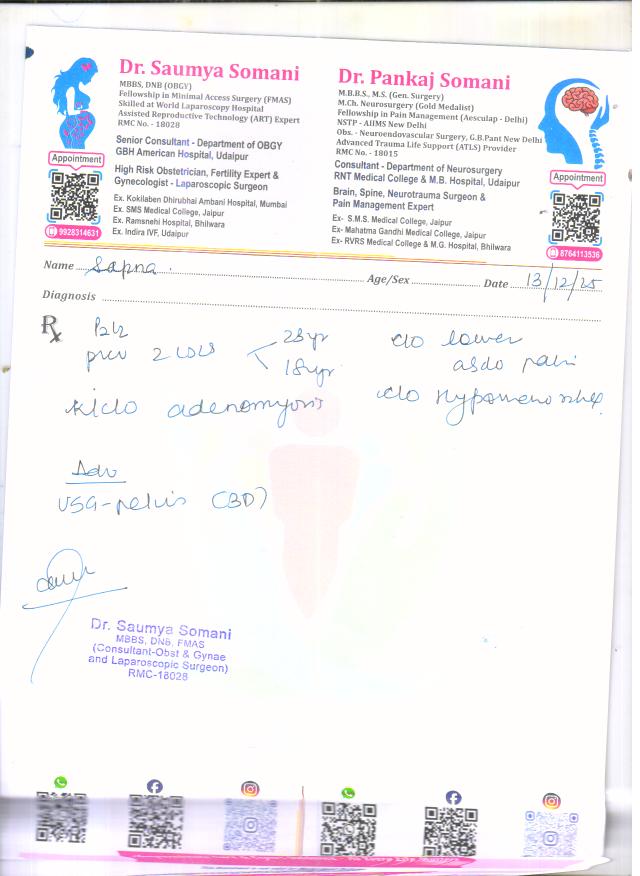 Dr. Saumya Somani
MBBS, DNB (OBGY)
Fellowship in Minimal Access Surgery (FMAS)
Skilled at World Laparoscopy Hospital
Assisted Reproductive Technology (ART) Expert
RMC No. - 18028
Senior Consultant - Department of OBGY
GBH American Hospital, Udaipur
High Risk Obstetrician, Fertility Expert &
Gynecologist - Laparoscopic Surgeon
Ex. Kokilaben Dhirubhai Ambani Hospital, Mumbai
Ex. SMS Medical College, Jaipur
Ex. Ramsnehi Hospital, Bhilwara
Ex. Indira IVF, Udaipur
Appointment
9928314631
Dr. Pankaj Somani
M.B.B.S., M.S. (Gen. Surgery)
M.Ch. Neurosurgery (Gold Medalist)
Fellowship in Pain Management (Aesculap - Delhi)
NSTP - AIIMS New Delhi
Obs. - Neuroendovascular Surgery, G.B.Pant New Delhi
Advanced Trauma Life Support (ATLS) Provider
RMC No. - 18015
Consultant - Department of Neurosurgery
RNT Medical College & M.B. Hospital, Udaipur
Brain, Spine, Neurotrauma Surgeon &
Pain Management Expert
Ex- S.M.S. Medical College, Jaipur
Ex- Mahatma Gandhi Medical College, Jaipur
Ex- RVRS Medical College & M.G. Hospital, Bhilwara
Appointment
8764113536
Name Sapna Age/Sex Date 13/12/25
Diagnosis
Rx P2L2
prev 2 LSCS 23yr c/o lower
18yr abdo pain
k/c/o adenomyosis c/o Hypomenorrhea
Adv
USG-pelvis
Dr. Saumya Somani
MBBS, DNB, FMAS
(Consultant-Obst & Gynae
and Laparoscopic Surgeon)
RMC-18028